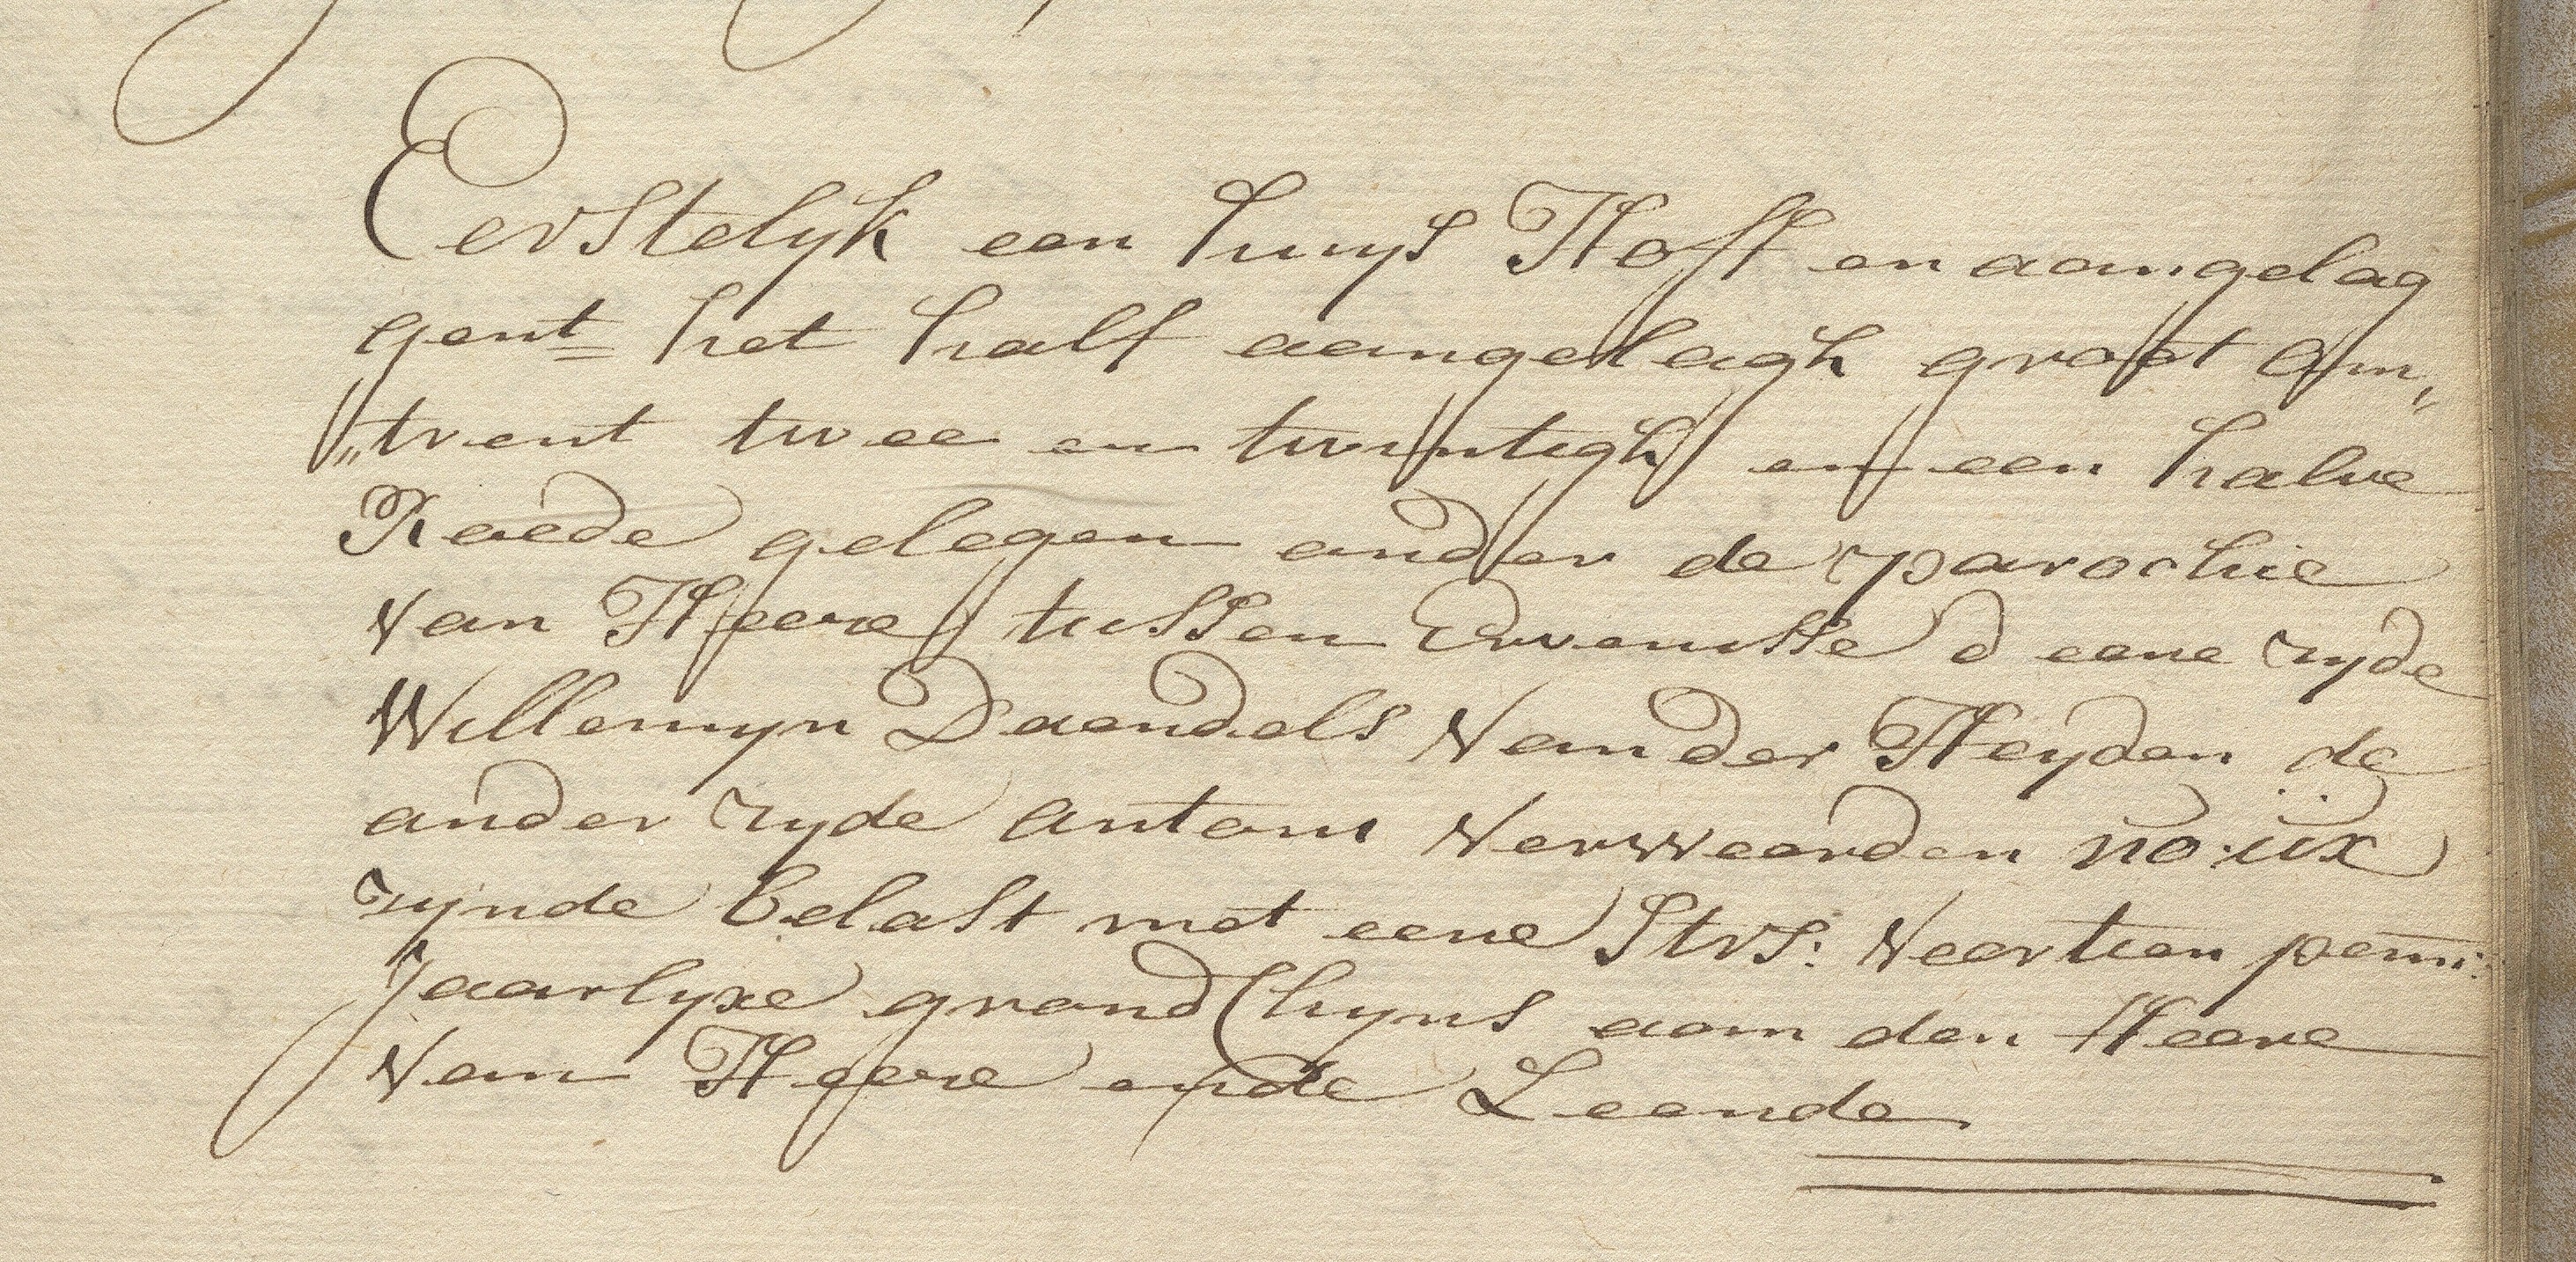 Eerstelyk een huys Hoff en aangelag
gent= het half aangelagh groot om„
„trent twee en twintigh en een halve
Roede gelegen onder de parochie
van Heere tussen Ervenisse d eene zyde
Willemyn Daendels van der Heyden de
ander zyde antoni verweerden no: ux
zynde belast met eene Stvs: veertien penn:
Jaarlyxe grond Chyns aan den Heere
van Heere ende Leende